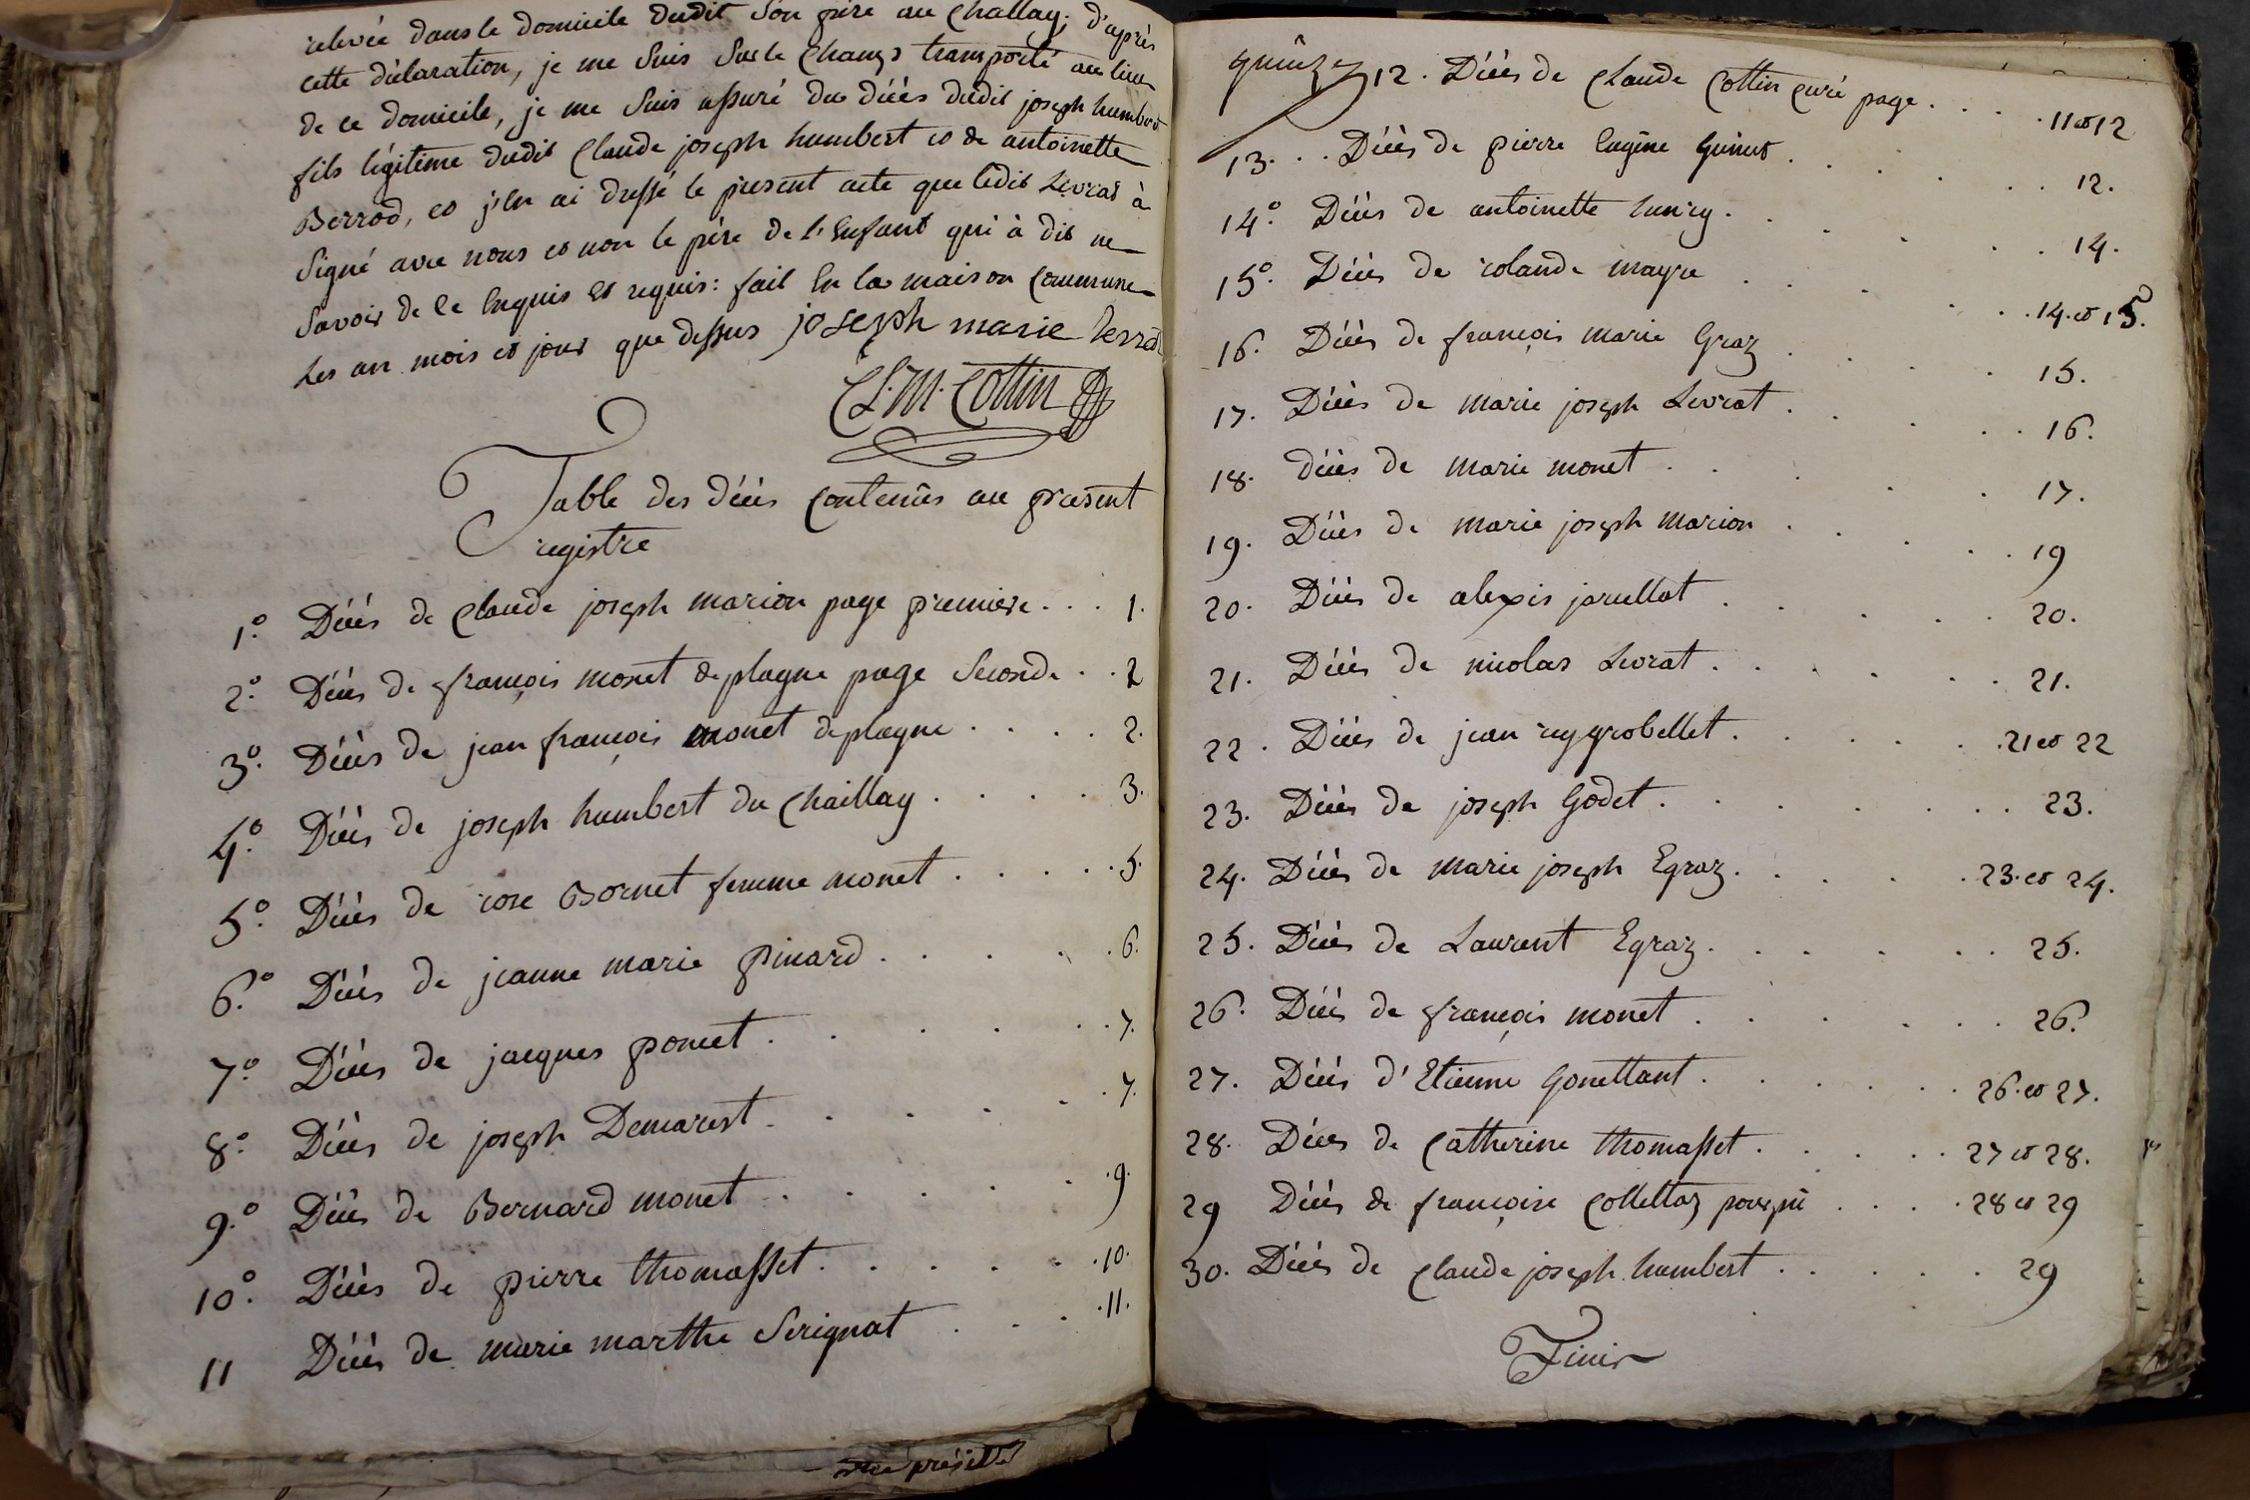 relevée dans le domicile dudit son père au Challay; d'après
cette déclaration, je me suis sur le champs transporté au lieu
de ce domicile, je me suis assuré du décès dudit joseph humbert
fils légitime dudit Claude joseph humbert et de antoinette
Berrod, et j'en ai dressé le present acte que ledit Levrat à
Signé avec nous et non le père de l'enfant qui à dit ne
Savoir de ce enquis et requis: fait en la maison Commune
Les an mois et jour que dessus joseph marie
Cl. M. Cottin
Table des décès contenûs au present
registre
1.° Décés de Claude joseph marion page premiere . . . 1.
2.° Décès de françois monet de plagne page Seconde . . 2
3.° Décès de jean françois monet de plagne . . . . 2.
4.° Décès de joseph humbert du Chaillay . . . . 3.
5.° Décès de rose Bornet femme monet . . . . . 5.
6.° Décès de jeanne marie pinard . . . . . 6.
7.° Décès de jacques poncet . . . . . 7.
8.° Décès de joseph Demarest . . . . . 7.
9.° Décès de Bernard monet . . . . . 9.
10.° Décès de pierre thomasset . . . . . 10.
11 Décès de marie marthe Serignat . . . 11.
quinze
12. Décès de Claude Cottin curé page . . . 11 et 12
13. . . Décès de pierre Eugêne . . . . . 12.
14.° Décès de antoinette . . . . . 14.
15.° Décès de rolande mayre . . . . . 14. et 15.
16. Décès de françois marie Graz . . . . 15.
17. Décès de marie joseph Levrat . . . . . 16.
18. décès de marie monet . . . . 17.
19. Décès de marie joseph marion . . . . . 19
20. Décès de alexis . . . . . 20.
21. Décès de nicolas Levrat . . . . . 21.
22. Décès de jean reygrobellet . . . . . . 21 et 22
23. Décès de joseph Godet . . . . . . 23.
24. Décès de marie joseph Egraz . . . . . 23. et 24.
25. Décès de Laurent Egraz . . . . . 25.
26. Décès de françois monet . . . . . . 26.
27. Décès d'Etienne Gonettant . . . . . . 26. et 27.
28. Décès de Catherine thomasset . . . . . 27 et 28.
29 Décès de françoise Collettaz . . . . 28 et 29
30. Décès de Claude joseph humbert . . . . . 29
Finis